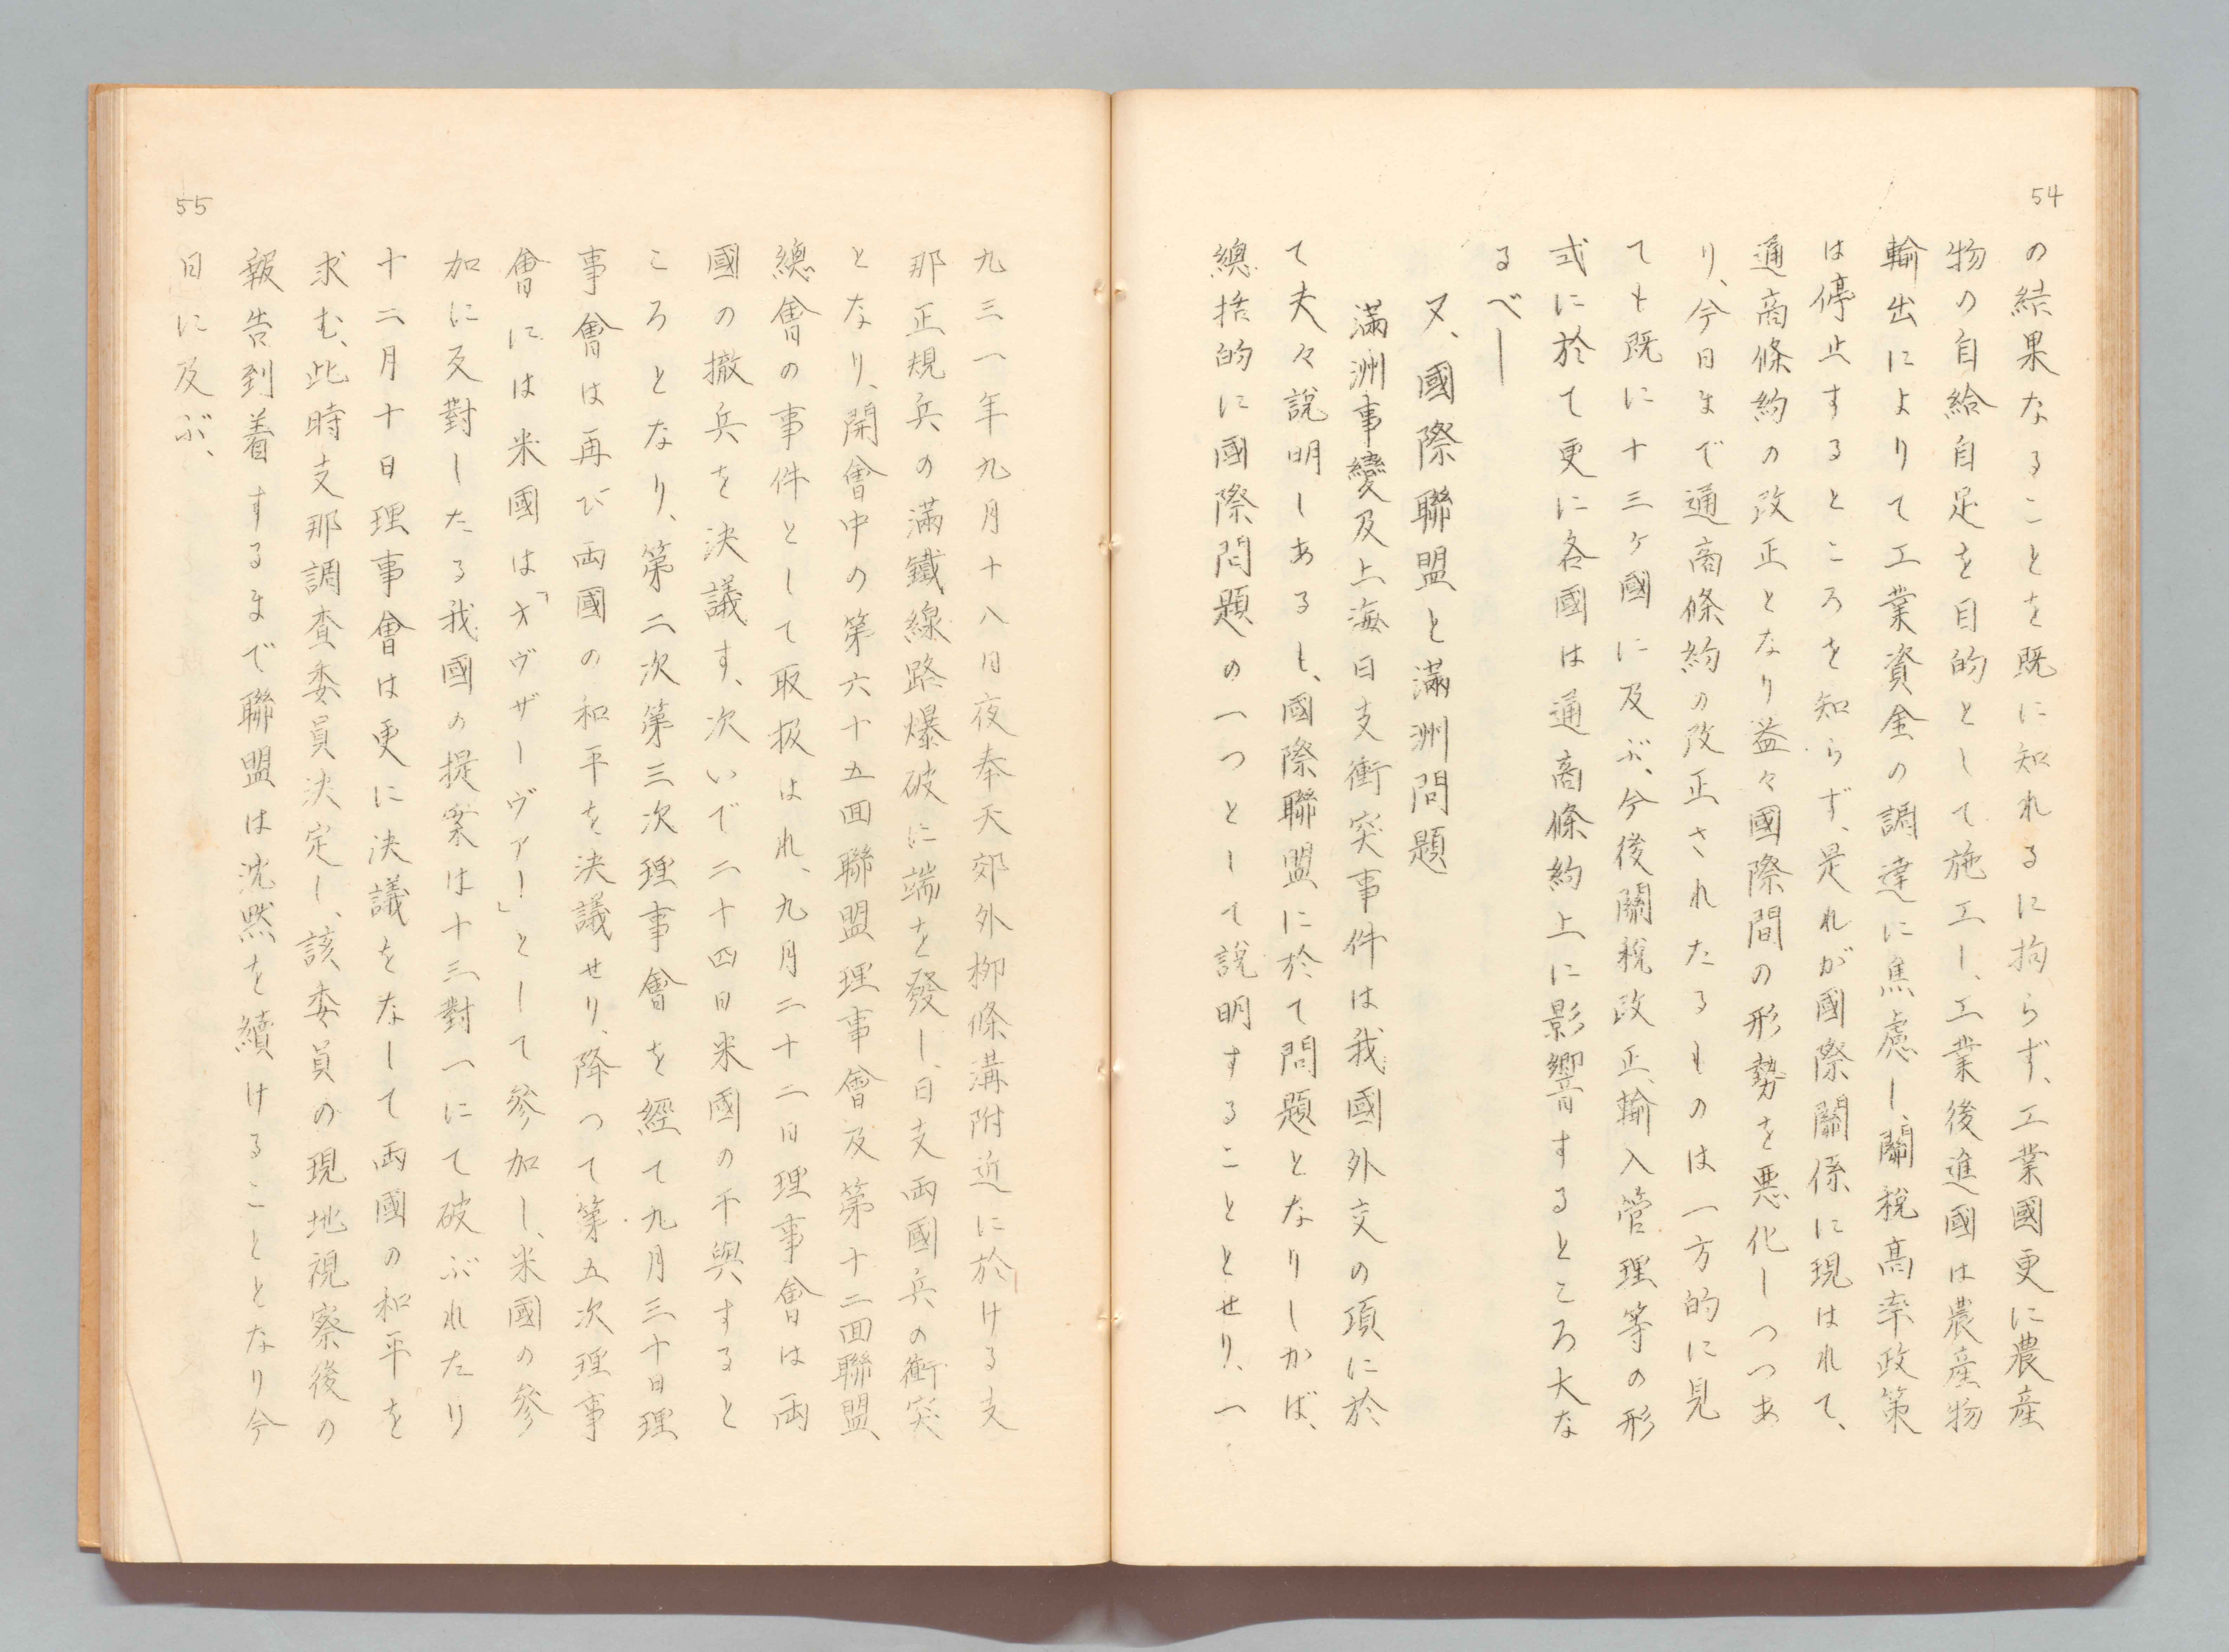 54
の結果なることを既に知れるに拘らず、工業國更に農産
物の自給自足を目的として施工し、工業後進國は農産物
輸出によりて工業資金の調達に焦慮し、關税高率政策
は停止するところを知らず、是れが國際關係に現はれて、
通商條約の改正となり益々國際間の形勢を悪化しつつあ
り、今日まで通商條約の改正されたるものは一方的に見
ても既に十三ケ國に及ぶ、今後關税改正、輸入管理等の形
式に於て更に各國は通商條約上に影響するところ大な
るべし
又、國際聯盟と滿洲問題
滿洲事變及上海日支衝突事件は我國外交の項に於
て夫々説明しあるも、國際聯盟に於て問題となりしかば、
總括的に國際問題の一つとして説明することとせり、一
55
九三一年九月十八日夜奉天郊外柳條溝附近に於ける支
那正規兵の滿鐵線路爆破に端を發し、日支両國兵の衝突
となり、開會中の第六十五回聯盟理事會及第十二回聯盟
總會の事件として取扱はれ、九月二十二日理事會は両
國の撤兵を決議す、次いで二十四日米國の干與すると
ころとなり、第二次第三次理事會を經て九月三十日理
事會は再び両國の和平を決議せり、降つて第五次理事
會には米國は「オヴザーヴァー」として參加し、米國の參
加に反對したる我國の提案は十三對一にて破ぶれたり
十二月十日理事會は更に決議をなして両國の和平を
求む、此時支那調査委員決定し、該委員の現地視察後の
報告到着するまで聯盟は沈黙を續けることとなり今
日に及ぶ、